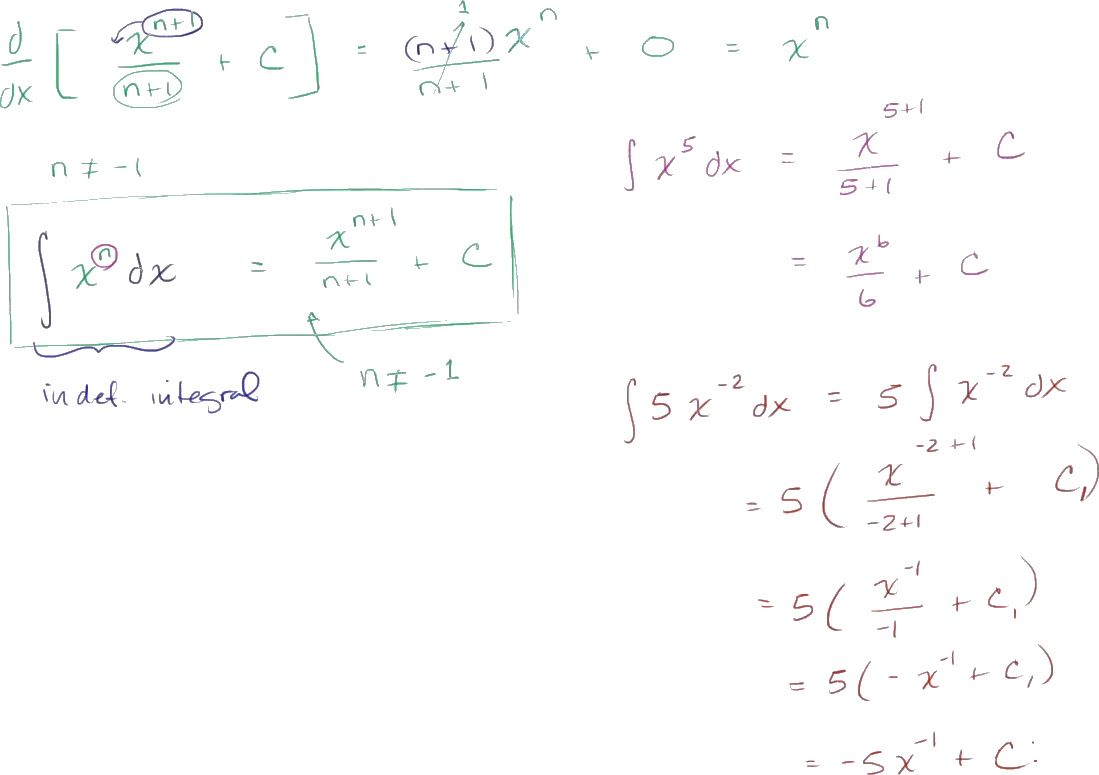 d/dx [ x^(n+1)/(n+1) + C ] = (n+1)x^n/(n+1) + 0 = x^n
1
n ≠ -1
∫ x^n dx = x^(n+1)/(n+1) + C
indef. integral
n ≠ -1
∫ x^5 dx = x^(5+1)/(5+1) + C
= x^6/6 + C
∫ 5 x^(-2) dx = 5 ∫ x^(-2) dx
= 5 ( x^(-2+1)/(-2+1) + C₁)
= 5 ( x^(-1)/(-1) + C₁)
= 5 (- x^(-1) + C₁)
= -5x^(-1) + C